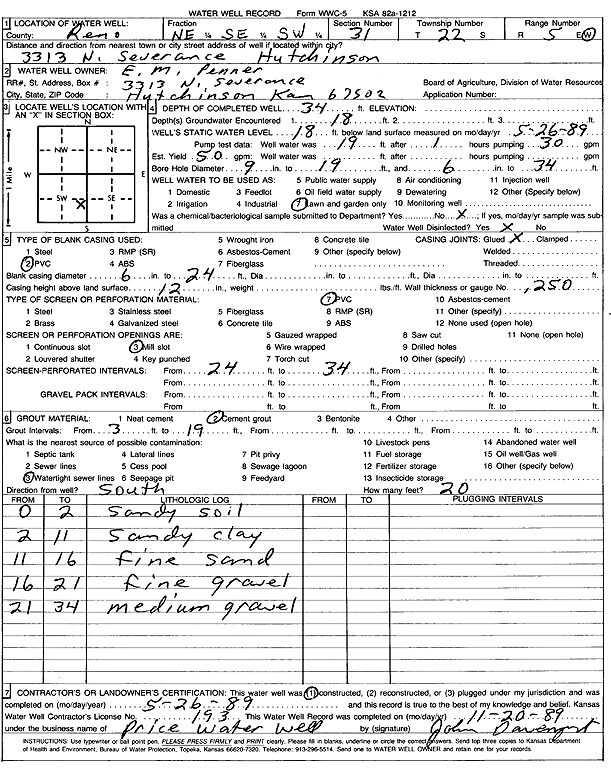 WATER WELL RECORD Form WWC-5 KSA 82a-1212
1 LOCATION OF WATER WELL: Fraction Section Number Township Number Range Number
County: Reno NE ¼ SE ¼ SW ¼ 31 T 22 S R 5 E/W
Distance and direction from nearest town or city street address of well if located within city?
3313 N. Severance Hutchinson
2 WATER WELL OWNER: E. M. Penner
RR#, St. Address, Box # : 3313 N. Severance Board of Agriculture, Division of Water Resources
City, State, ZIP Code : Hutchinson Kan 67502 Application Number:
3 LOCATE WELL'S LOCATION WITH AN "X" IN SECTION BOX:
N
NW NE
W E
SW X SE
S
1 Mile
4 DEPTH OF COMPLETED WELL 34 ft. ELEVATION:
Depth(s) Groundwater Encountered 1. 18 ft. 2. ft. 3. ft.
WELL'S STATIC WATER LEVEL 18 ft. below land surface measured on mo/day/yr 5-26-89
Pump test data: Well water was 19 ft. after 1 hours pumping 30 gpm
Est. Yield 50 gpm: Well water was ft. after hours pumping gpm
Bore Hole Diameter 9 in. to 19 ft., and 6 in. to 34 ft.
WELL WATER TO BE USED AS: 5 Public water supply 8 Air conditioning 11 Injection well
1 Domestic 3 Feedlot 6 Oil field water supply 9 Dewatering 12 Other (Specify below)
2 Irrigation 4 Industrial 7 Lawn and garden only 10 Monitoring well
Was a chemical/bacteriological sample submitted to Department? Yes No X ; If yes, mo/day/yr sample was submitted Water Well Disinfected? Yes X No
5 TYPE OF BLANK CASING USED: 5 Wrought iron 8 Concrete tile CASING JOINTS: Glued X Clamped
1 Steel 3 RMP (SR) 6 Asbestos-Cement 9 Other (specify below) Welded
2 PVC 4 ABS 7 Fiberglass Threaded
Blank casing diameter 6 in. to 24 ft., Dia in. to ft., Dia in. to ft.
Casing height above land surface 12 in., weight lbs./ft. Wall thickness or gauge No. .250
TYPE OF SCREEN OR PERFORATION MATERIAL: 7 PVC 10 Asbestos-cement
1 Steel 3 Stainless steel 5 Fiberglass 8 RMP (SR) 11 Other (specify)
2 Brass 4 Galvanized steel 6 Concrete tile 9 ABS 12 None used (open hole)
SCREEN OR PERFORATION OPENINGS ARE: 5 Gauzed wrapped 8 Saw cut 11 None (open hole)
1 Continuous slot 3 Mill slot 6 Wire wrapped 9 Drilled holes
2 Louvered shutter 4 Key punched 7 Torch cut 10 Other (specify)
SCREEN-PERFORATED INTERVALS: From 24 ft. to 34 ft., From ft. to ft.
From ft. to ft., From ft. to ft.
GRAVEL PACK INTERVALS: From ft. to ft., From ft. to ft.
From ft. to ft., From ft. to ft.
6 GROUT MATERIAL: 1 Neat cement 2 Cement grout 3 Bentonite 4 Other
Grout Intervals: From 3 ft. to 19 ft., From ft. to ft., From ft. to ft.
What is the nearest source of possible contamination: 10 Livestock pens 14 Abandoned water well
1 Septic tank 4 Lateral lines 7 Pit privy 11 Fuel storage 15 Oil well/Gas well
2 Sewer lines 5 Cess pool 8 Sewage lagoon 12 Fertilizer storage 16 Other (specify below)
3 Watertight sewer lines 6 Seepage pit 9 Feedyard 13 Insecticide storage
Direction from well? South How many feet? 20
FROM TO LITHOLOGIC LOG FROM TO PLUGGING INTERVALS
0 2 sandy soil
2 11 sandy clay
11 16 fine sand
16 21 fine gravel
21 34 medium gravel
7 CONTRACTOR'S OR LANDOWNER'S CERTIFICATION: This water well was (1) constructed, (2) reconstructed, or (3) plugged under my jurisdiction and was
completed on (mo/day/year) 5-26-89 and this record is true to the best of my knowledge and belief. Kansas
Water Well Contractor's License No. 193 This Water Well Record was completed on (mo/day/yr) 11-20-89
under the business name of Price Water Well by (signature) John Davenport
INSTRUCTIONS: Use typewriter or ball point pen. PLEASE PRESS FIRMLY and PRINT clearly. Please fill in blanks, underline or circle the correct answers. Send top three copies to Kansas Department
of Health and Environment, Bureau of Water Protection, Topeka, Kansas 66620-7320. Telephone: 913-296-5514. Send one to WATER WELL OWNER and retain one for your records.